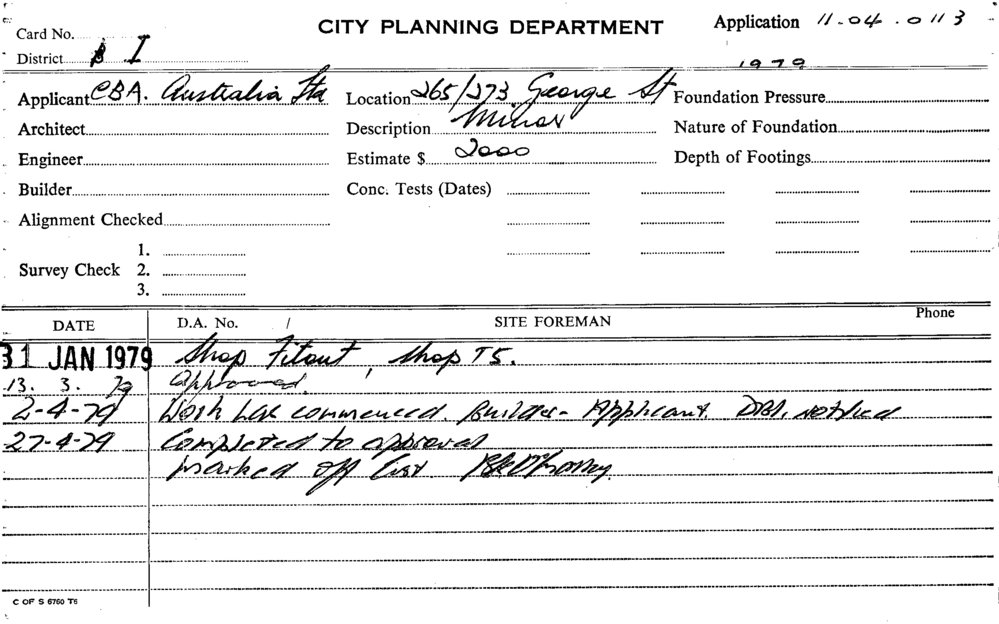 CITY PLANNING DEPARTMENT
Application 11-04-0113
1979
Card No.
District I
Applicant CBA. Australia Ltd
Location 265/273 George St
Foundation Pressure
Architect
Description Minor
Nature of Foundation
Engineer
Estimate $ 2000
Depth of Footings
Builder
Conc. Tests (Dates)
Alignment Checked
Survey Check 1.
2.
3.
DATE D.A. No. / SITE FOREMAN Phone
31 JAN 1979 Shop Fitout, Shop T5.
13. 3. 79 Approved.
2-4-79 Work has commenced. Builder - Applicant. notified
27-4-79 Completed to approval
marked off list.
C OF S 6760 T6